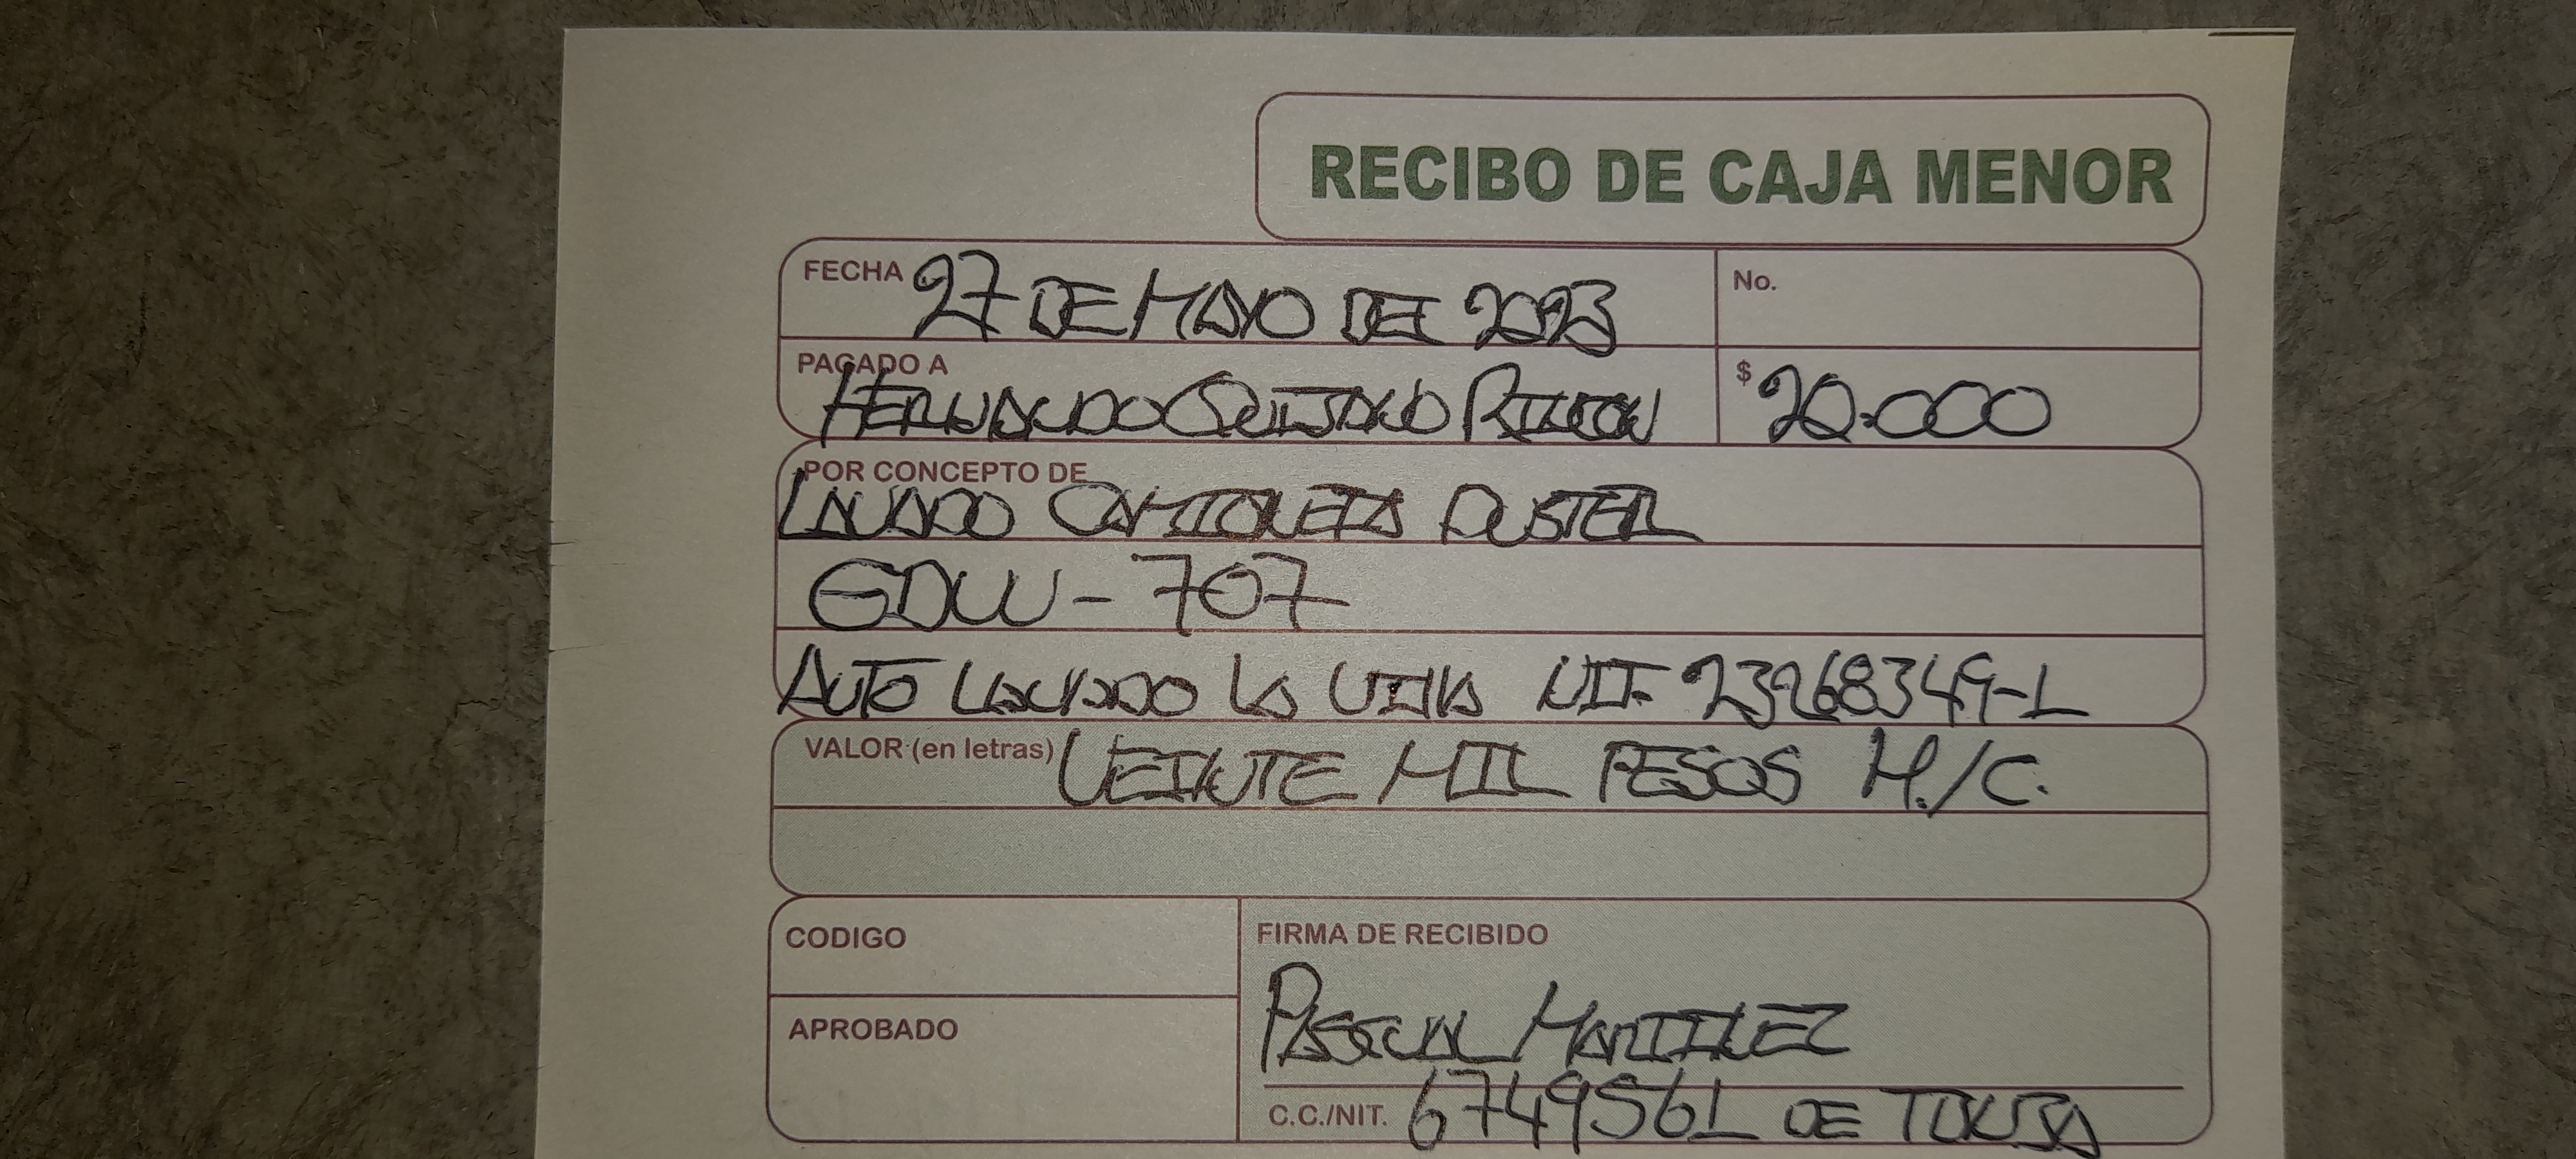 RECIBO DE CAJA MENOR
FECHA 27 DE MAYO DEL 2023 No.
PAGADO A HERNANDO QUIJANO RINCON $ 20.000
POR CONCEPTO DE
LAVADO CAMIONETA DUSTER
GDW - 707
AUTO LAVADO LA VIÑA NIT. 23268349-1
VALOR (en letras) VEINTE MIL PESOS M./C.
CODIGO FIRMA DE RECIBIDO
APROBADO PASCUAL MARTINEZ
C.C./NIT. 6749561 DE TUNJA